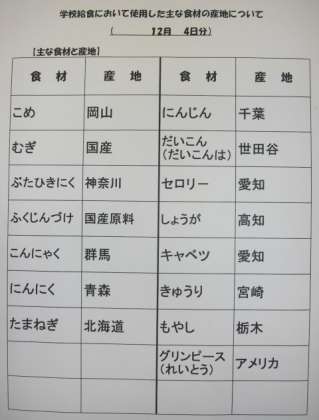 学校給食において使用した主な食材の産地について
(　12月　4日分)
【主な食材と産地】
食 材　産 地　食 材　産 地
こめ　岡山　にんじん　千葉
むぎ　国産　だいこん
(だいこんは)　世田谷
ぶたひきにく　神奈川　セロリー　愛知
ふくじんづけ　国産原料　しょうが　高知
こんにゃく　群馬　キャベツ　愛知
にんにく　青森　きゅうり　宮崎
たまねぎ　北海道　もやし　栃木
グリンピース
(れいとう)　アメリカ